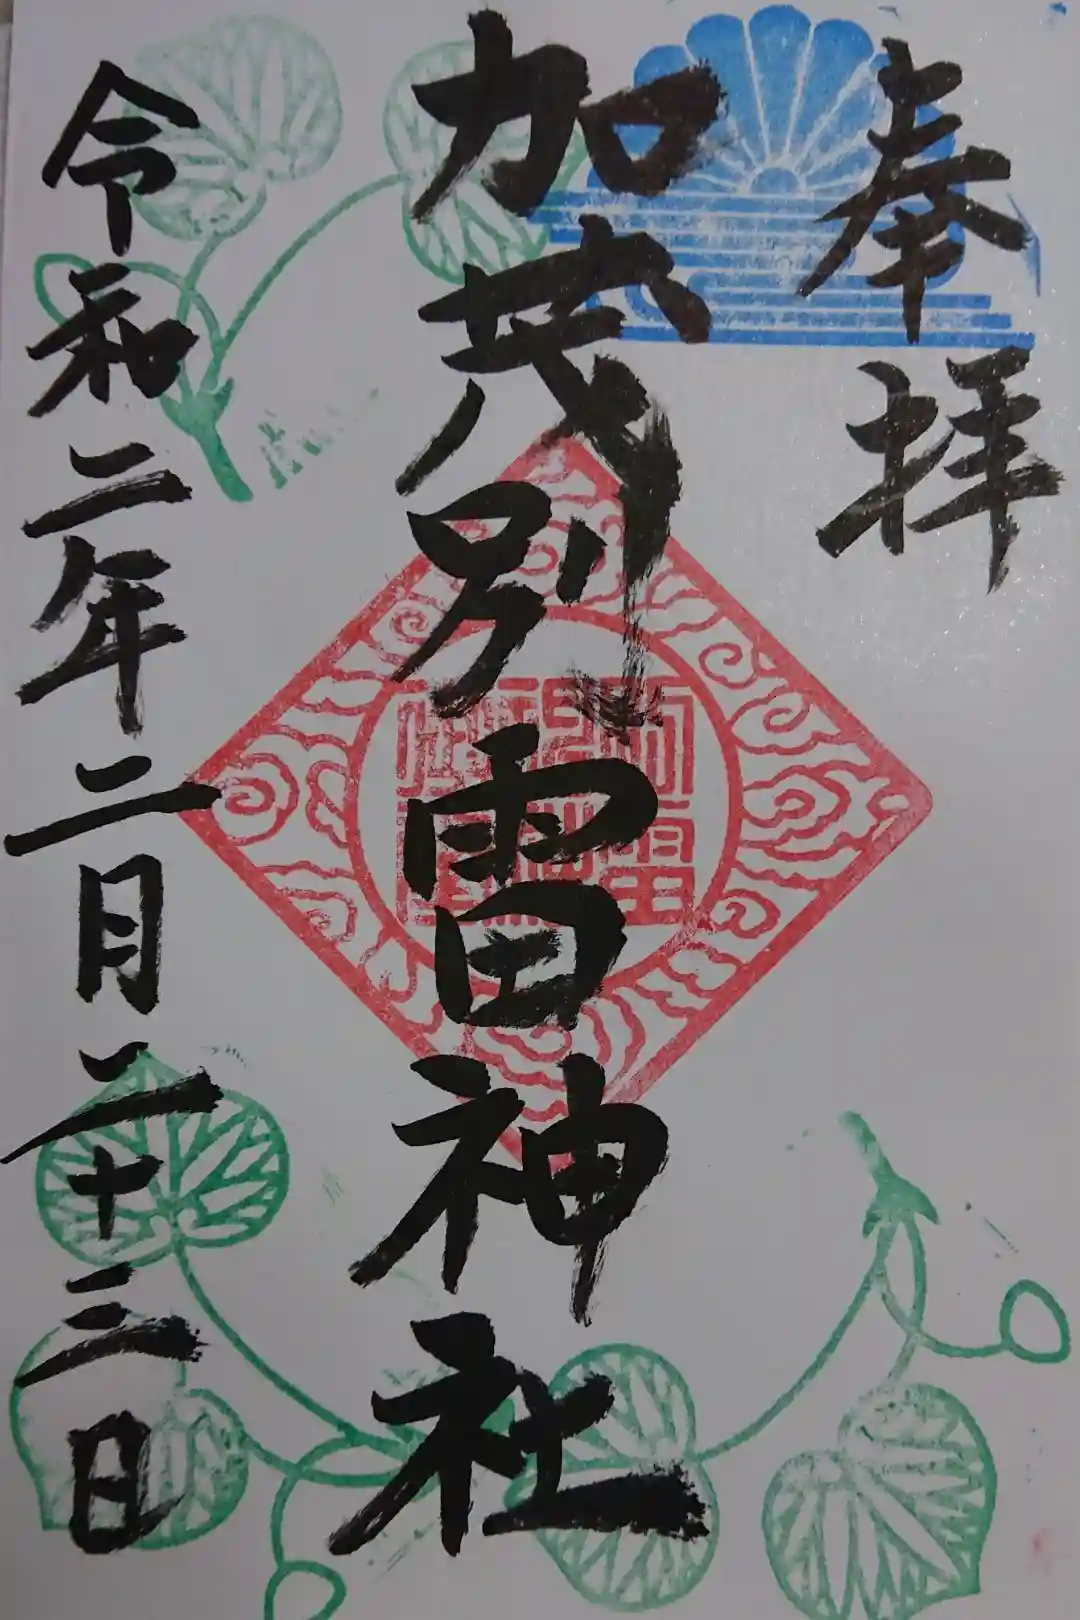 奉拝
加茂別雷神社
令和二年二月二十三日